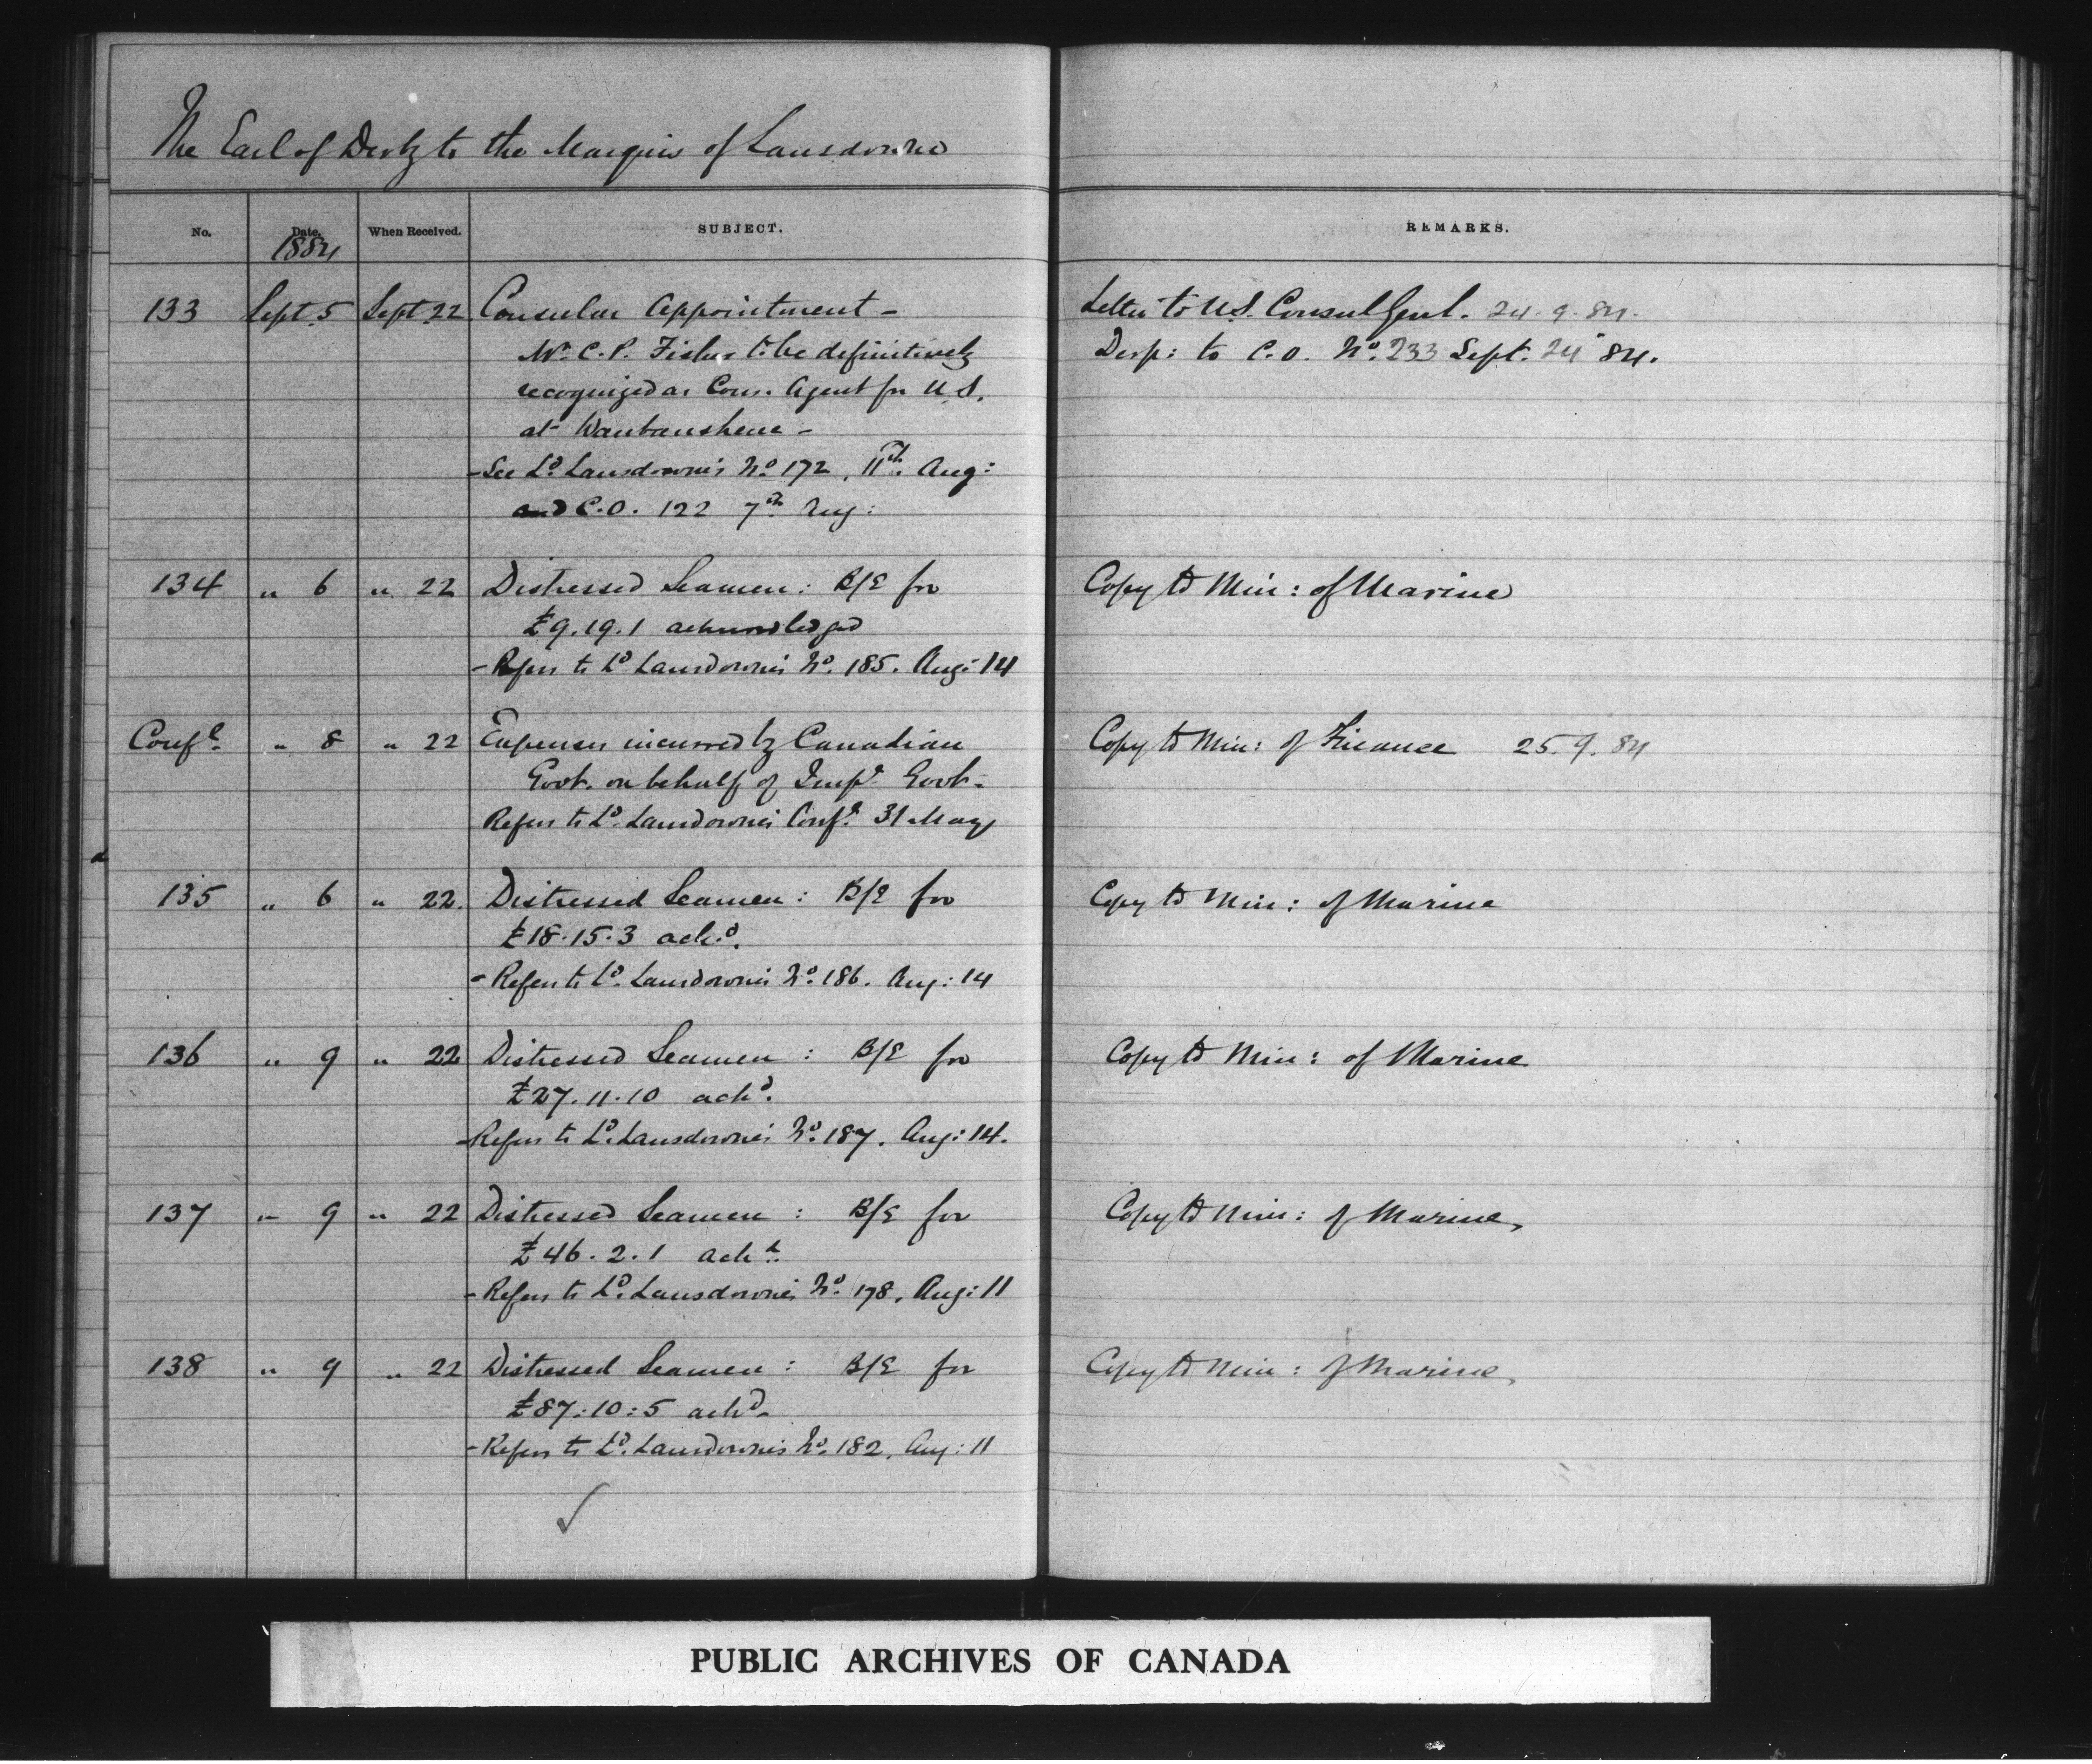 The Earl of Derby to the Marquis of Lansdowne
No. Date. When Received. SUBJECT. REMARKS.
1884
133 Sept. 5 Sept 22 Consular Appointment - Letter to U.S. Consul Genl. 24.9.84.
Mr. C. P. Fisher to be definitively Desp: to C.O. No. 233 Sept. 24 84.
recognized as Cons. Agent for U.S.
at Waubaushene -
- See Ld. Lansdowne's No. 172, 11th. Aug:
and C.O. 122 7th Aug:
134 " 6 " 22 Distressed Seamen: B/E for Copy to Min: of Marine
£9.19.1 acknowledged
- Refers to Ld. Lansdowne's No. 185. Aug: 14
Confl. " 8 " 22 Expenses incurred by Canadian Copy to Min: of Finance 25.9.84
Govt. on behalf of Impl. Govt. -
Refers to Ld. Lansdowne's Confl. 31 May
135 " 6 " 22. Distressed Seamen: B/E for Copy to Min: of Marine
£18.15.3 ackd.
- Refers to Ld. Lansdowne's No. 186. Aug: 14
136 " 9 " 22 Distressed Seamen: B/E for Copy to Min: of Marine
£27.11.10 ackd.
- Refers to Ld. Lansdowne's No. 187. Aug: 14.
137 " 9 " 22 Distressed Seamen: B/E for Copy to Min: of Marine,
£46.2.1 ackd.
- Refers to Ld. Lansdowne's No. 178. Aug: 11
138 " 9 " 22 Distressed Seamen: B/E for Copy to Min: of Marine,
£87:10:5 ackd -
- Refers to Ld. Lansdowne's No. 182. Aug: 11
PUBLIC ARCHIVES OF CANADA